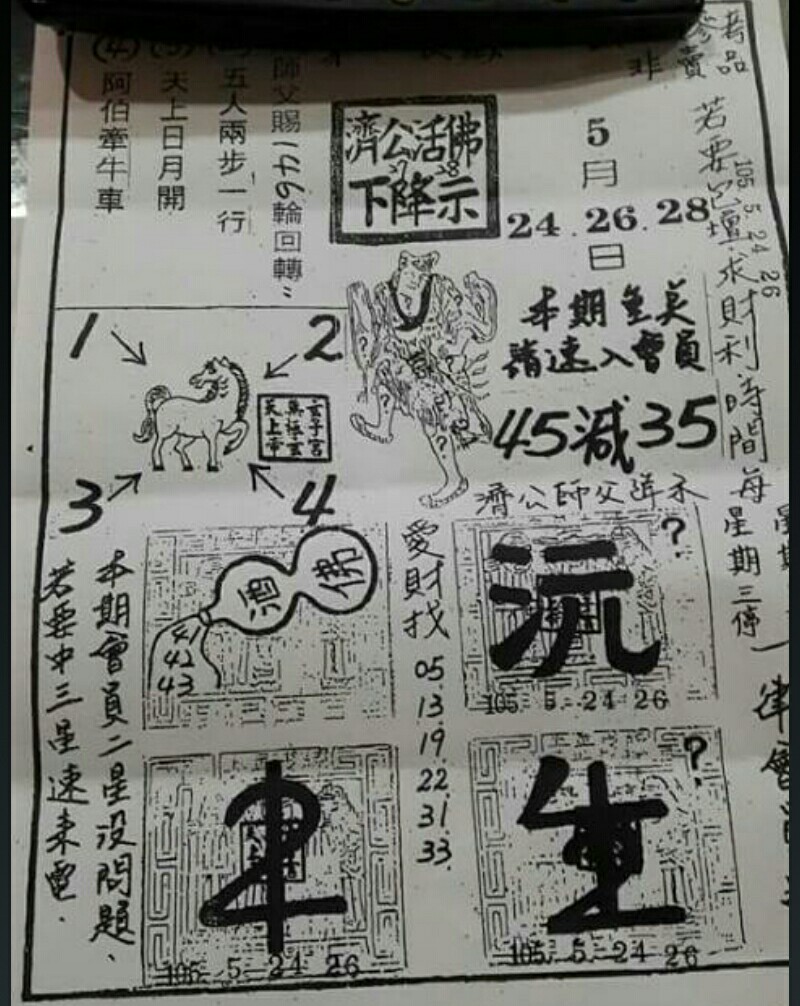 參考品
非賣
若要包壇求財利時間每
星期三停
105 5 24 26
5
月
24.26.28
日
濟公活佛
27 28
下降示
師父賜146輪回轉"
五人兩步一行
天上日月開
(4)阿伯牽牛車
本期
請速入會員
45減35
濟公師父詳示
1
2
3
4
玄子宮
無極玄
天上帝
濟
佛
41
42
43
愛財找
05
13
19
22
31
33
?
105 5 24 26
?
105.5.24 26
105 5 24 26
本期會員二星沒問題、
若要中三星速來電.